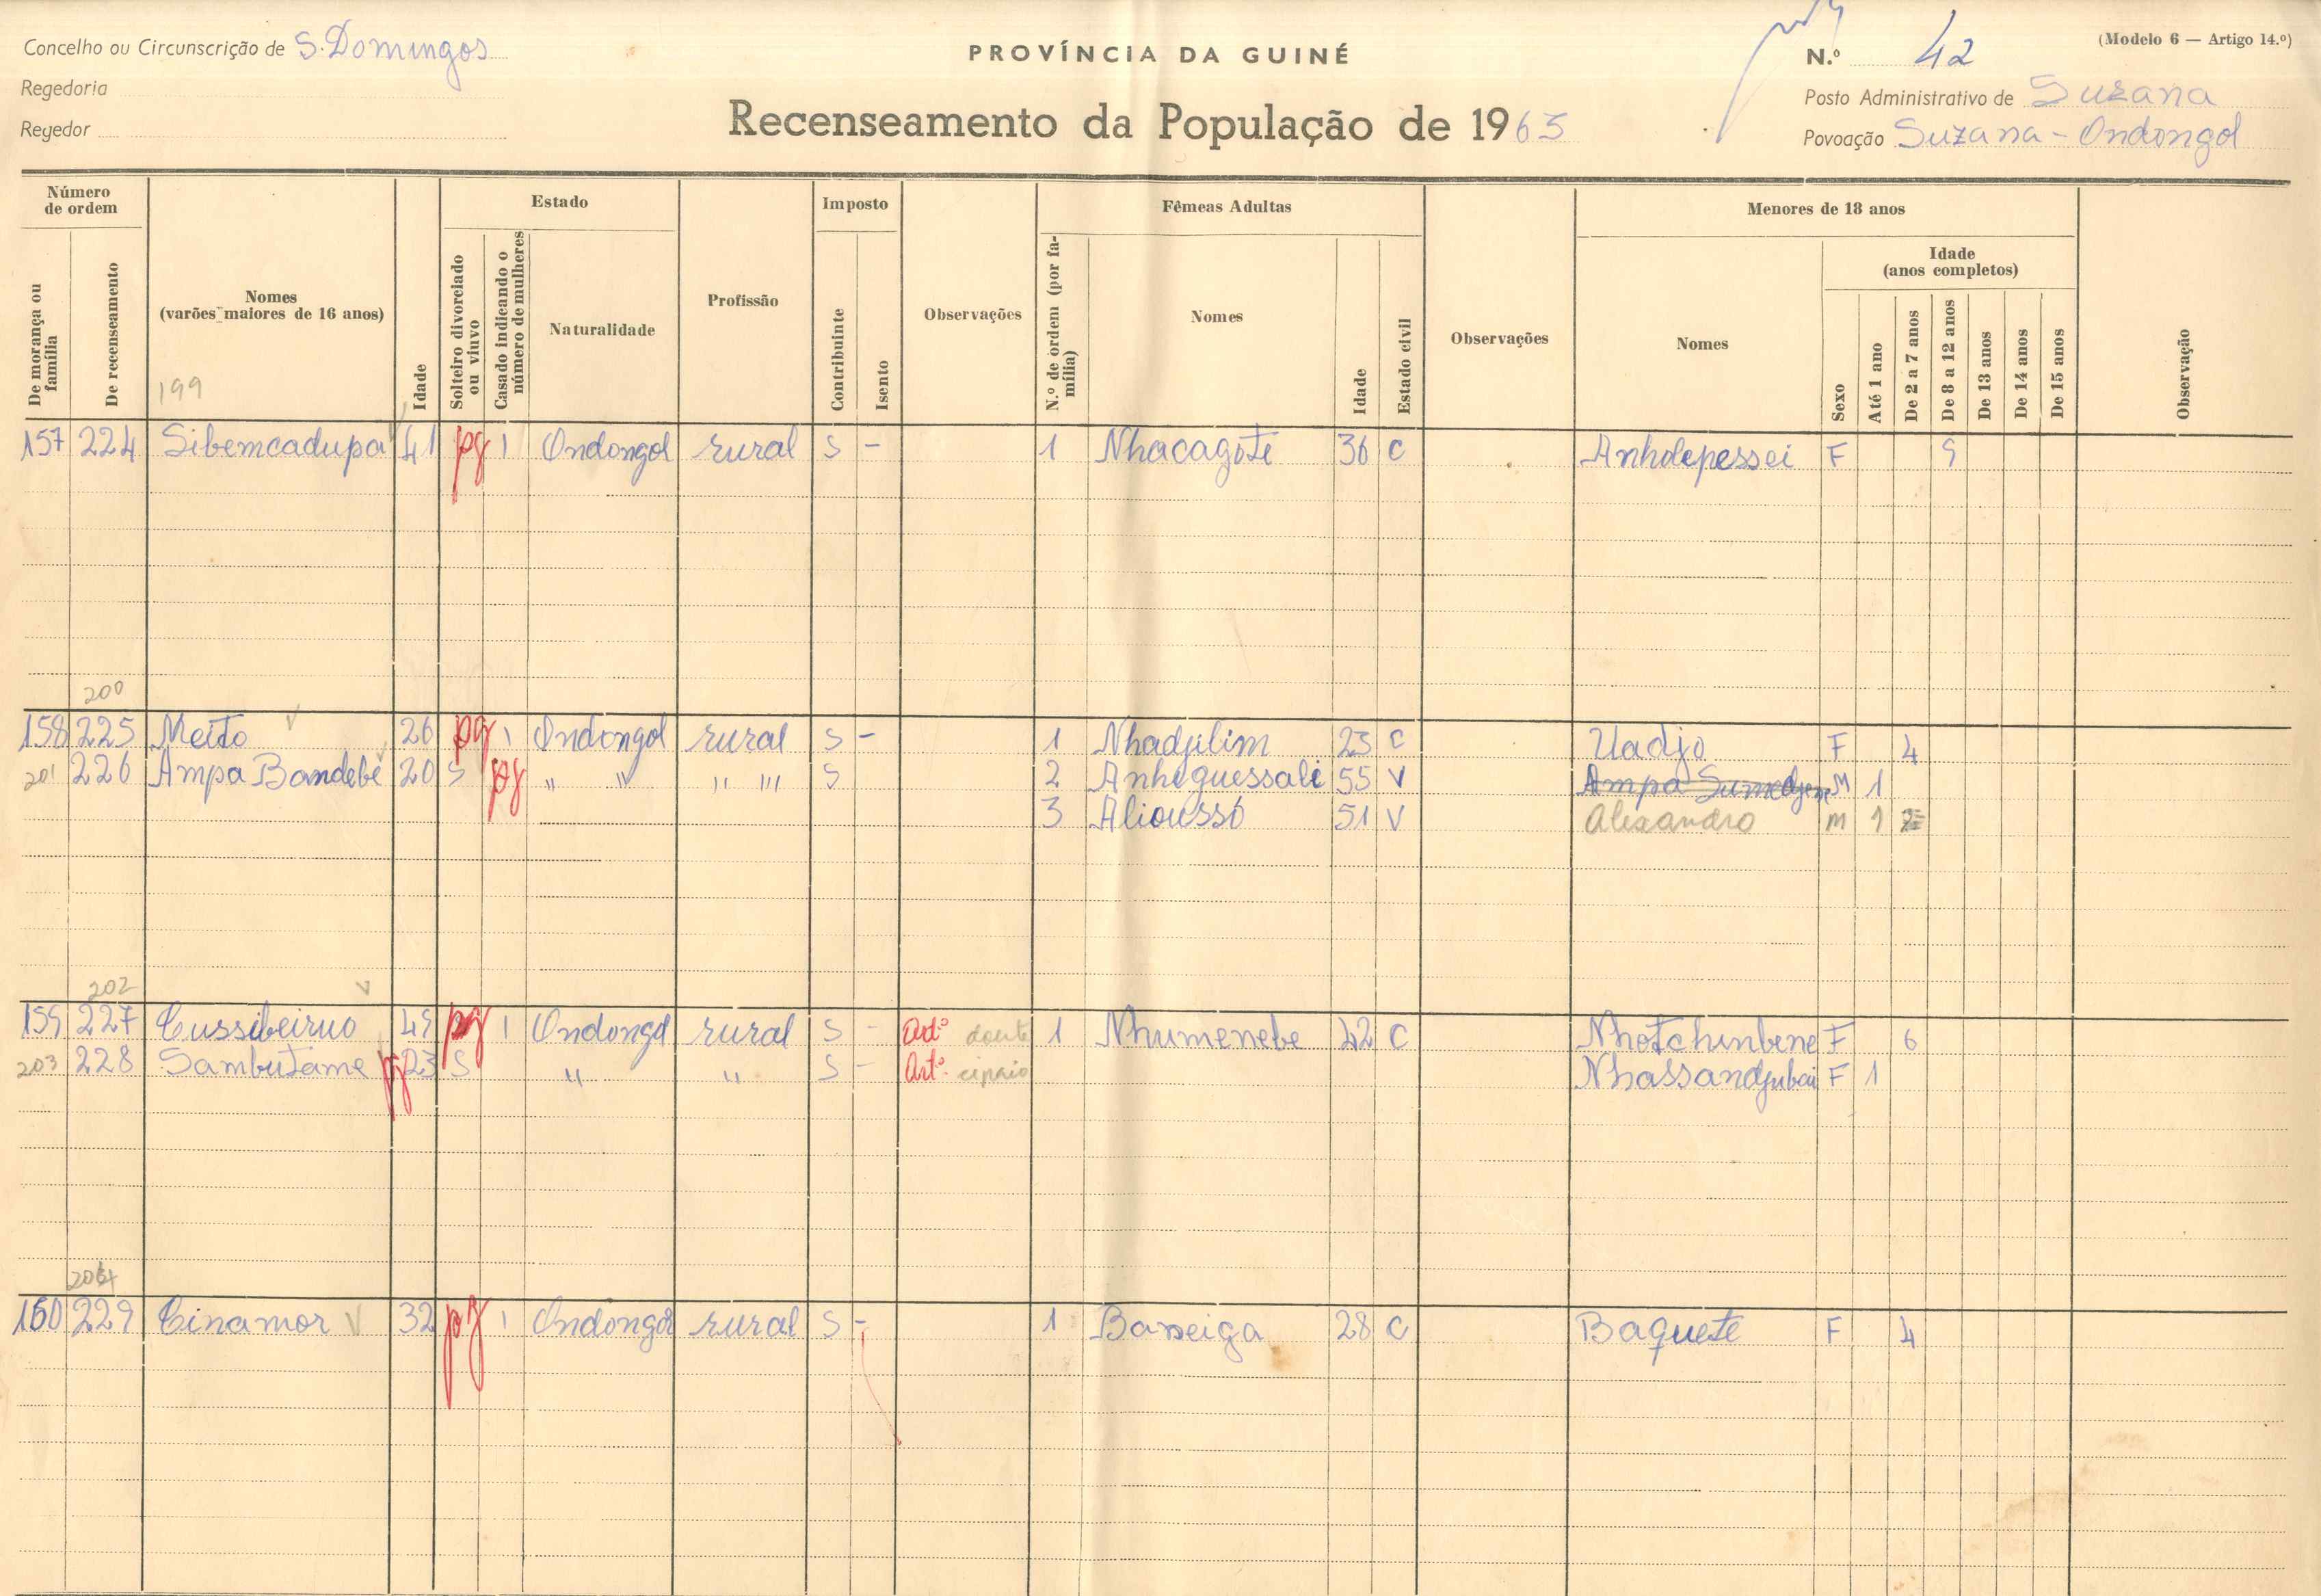 Concelho ou Circunscrição de S. Domingos
PROVÍNCIA DA GUINÉ
N.º 42
(Modelo 6 — Artigo 14.º)
Regedoria
Posto Administrativo de Suzana
Regedor
Recenseamento da População de 1963
Povoação Suzana - Ondongol
Número de ordem
Estado
Imposto
Fêmeas Adultas
Menores de 18 anos
De morança ou família
De recenseamento
Nomes
(varões maiores de 16 anos)
199
Idade
Solteiro divorciado ou viuvo
Casado indicando o número de mulheres
Naturalidade
Profissão
Contribuinte
Isento
Observações
N.º de ordem (por família)
Nomes
Idade
Estado civil
Observações
Nomes
Sexo
Idade
(anos completos)
Até 1 ano
De 2 a 7 anos
De 8 a 12 anos
De 13 anos
De 14 anos
De 15 anos
Observação
157 224 Sibemcadupa 41 pg 1 Ondongol rural S - 1 Nhacagote 36 C Anholepessei F 9
200
158 225 Meito 26 pg 1 Ondongol rural S - 1 Nhadjilim 23 C Uadjo F 4
201 226 Ampa Bandebé 20 S pg " " " " S 2 Anhequessali 55 V Ampa M 1
3 Aliousso 51 V Alexandro M 1
202
159 227 Cussibeiruo 49 pg 1 Ondongol rural S - 1 Nhumenebe 42 C Nhotchinbene F 6
203 228 Sambutame pg 23 S " " S - Art.º cipaio Nhassandjubai F 1
204
160 229 Cinamor 32 pg 1 Ondongol rural S - 1 Baneiga 28 C Baquete F 4